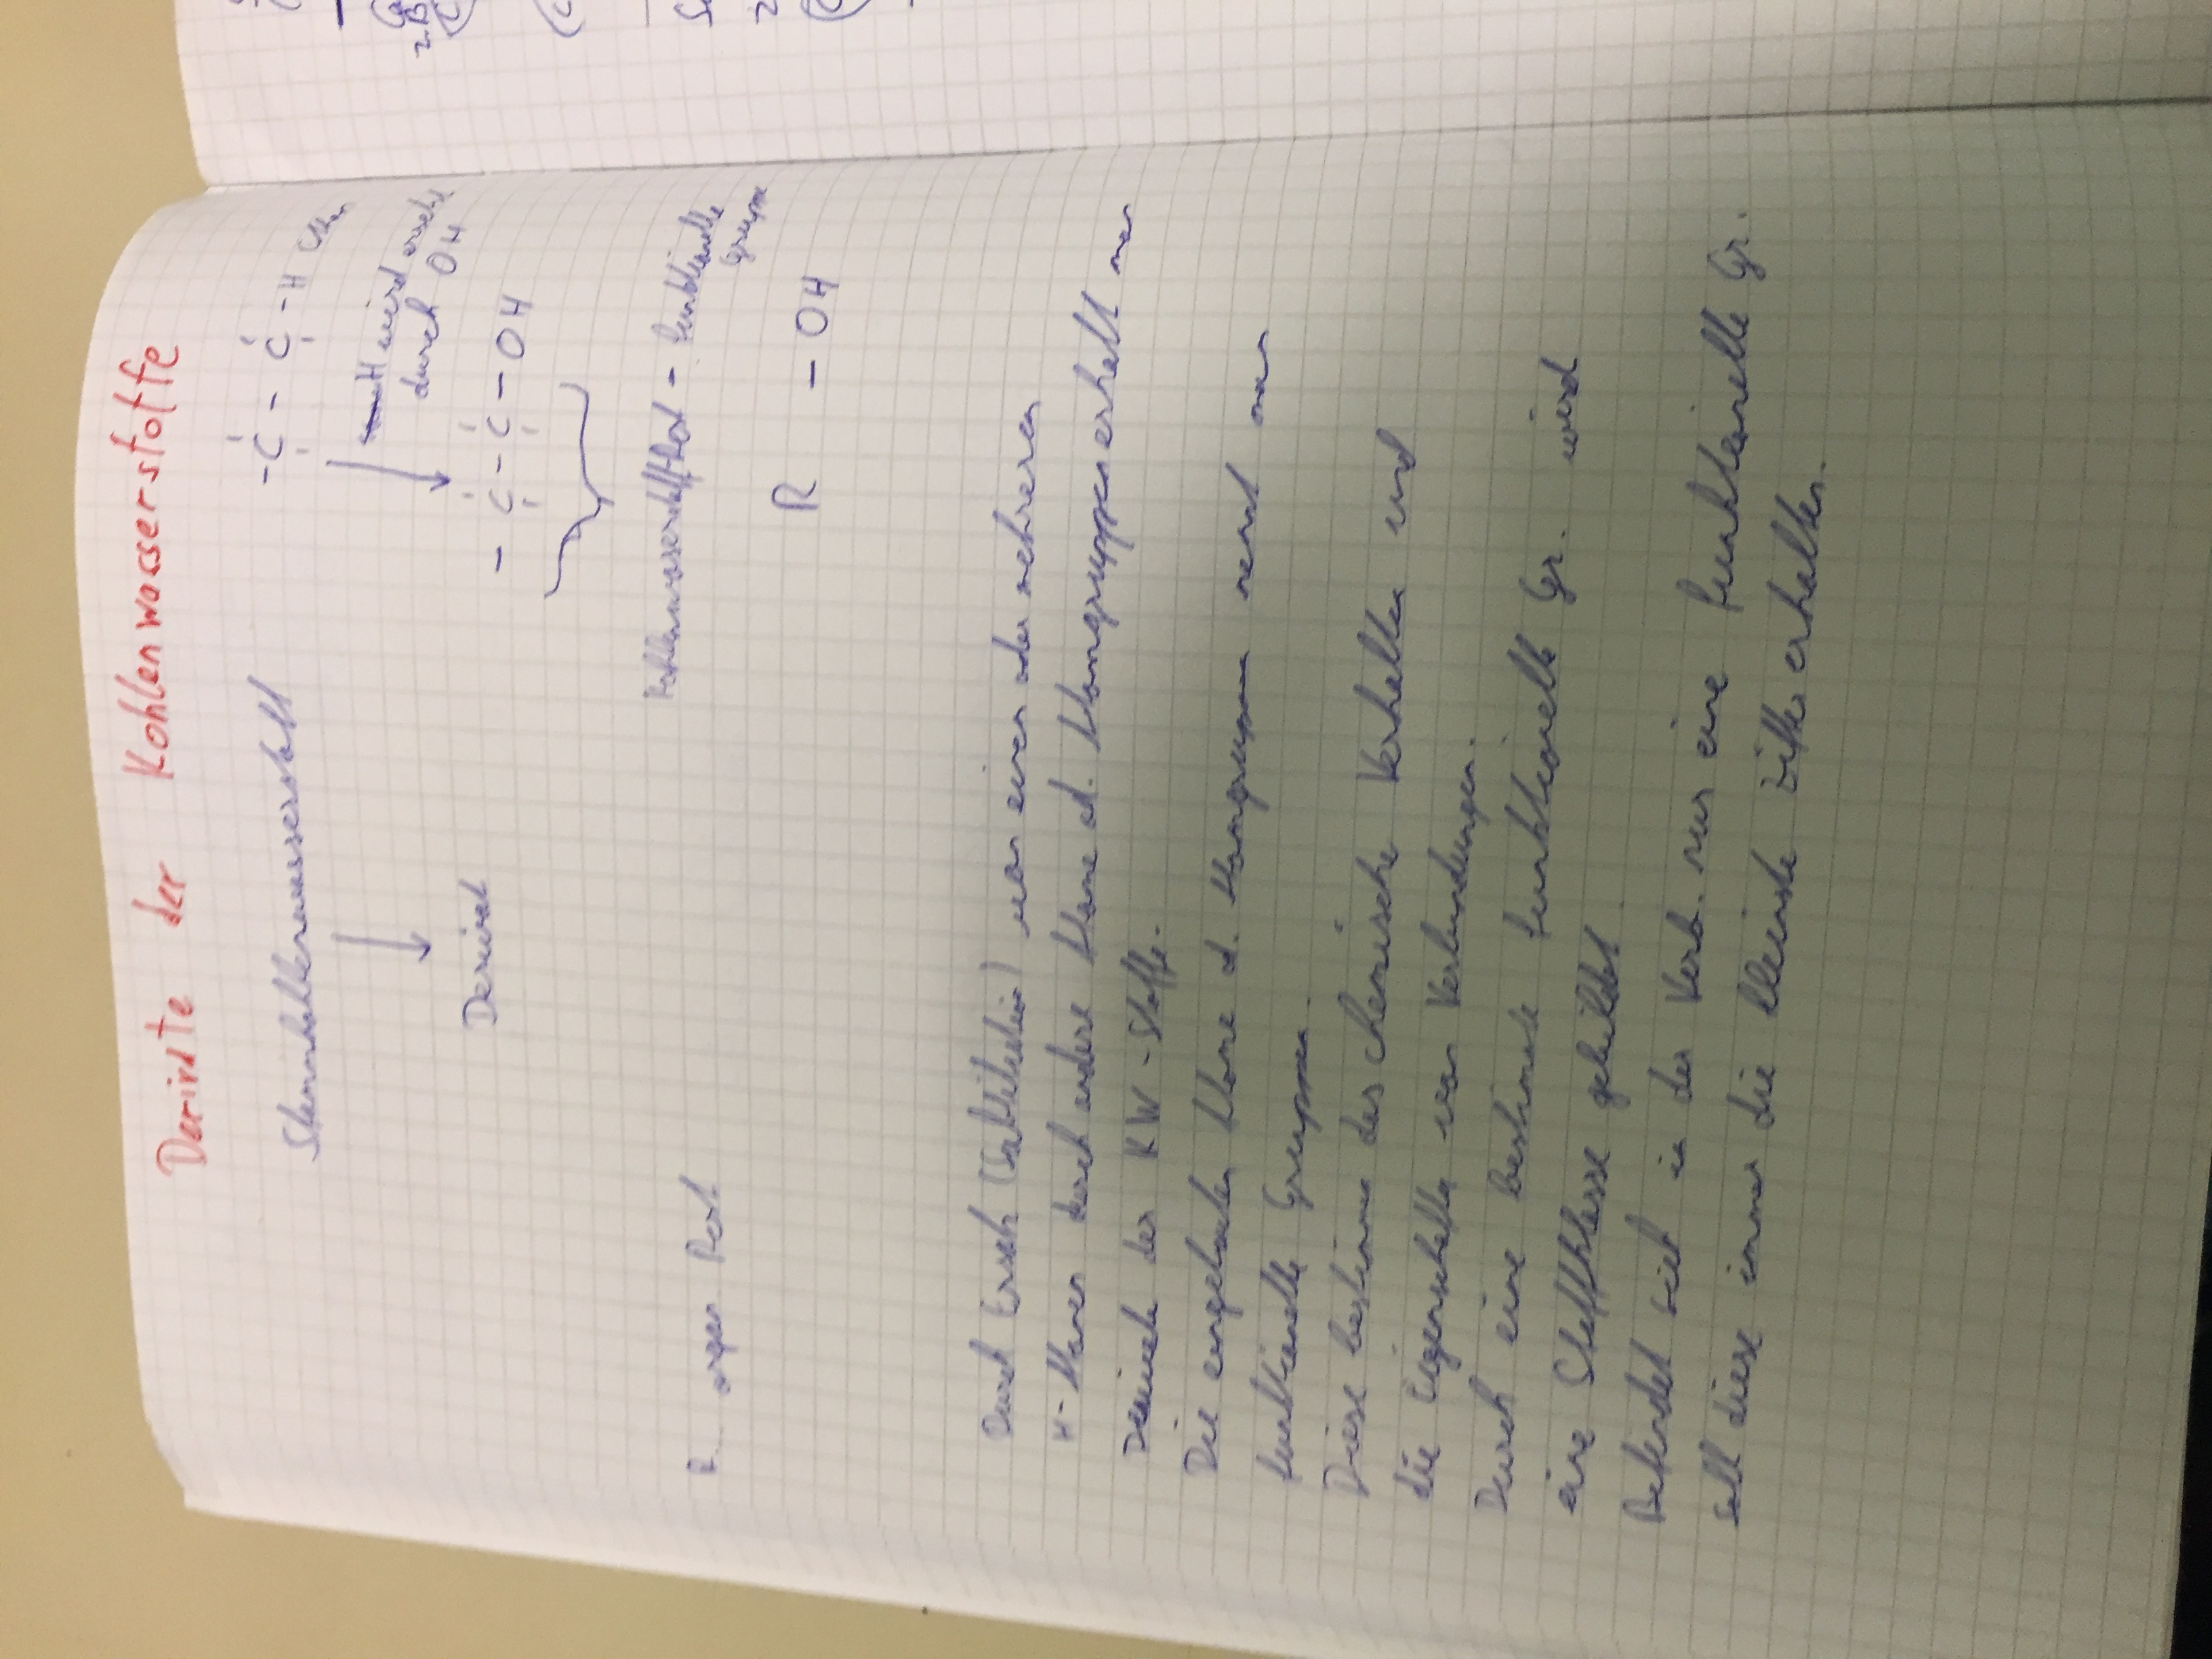 Derivate der Kohlenwasserstoffe
Stammkohlenwasserstoff
-C-C-H Ethan
H wird ersetzt
durch OH
Derivat
-C-C-OH
Kohlenwasserstoffrest - funktionelle
Gruppe
R... organ Rest
R -OH
Durch Ersatz (Substitution) von einen oder mehreren
H-Atomen durch andere Atome od. Atomgruppen erhält man
Derivate der KW-Stoffe.
Die eingebauten Atome od. Atomgruppen nennt man
funktionelle Gruppen.
Diese bestimmen das chemische Verhalten und
die Eigenschaften von Verbindungen.
Durch eine bestimmte funktionelle Gr. wird
eine Stoffklasse gebildet.
Befindet sich in der Verb. nur eine funktionelle Gr.
soll diese immer die kleinste Ziffer erhalten.
z.B